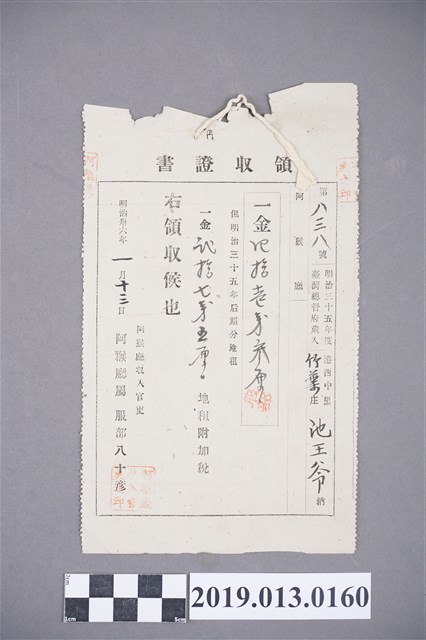 領收證書
第八三八號
明治三十五年度
臺灣總督府歲入
港西中里
竹葉庄
池王爺 納
阿猴廳
一金四拾壱錢弐厘
但明治三十五年后期分地租
一金弐拾七錢五厘
地租附加稅
右領收候也
明治卅六年一月十三日
阿猴廳收入官吏
阿猴廳屬 服部八十彥
2019.013.0160
1cm
5cm